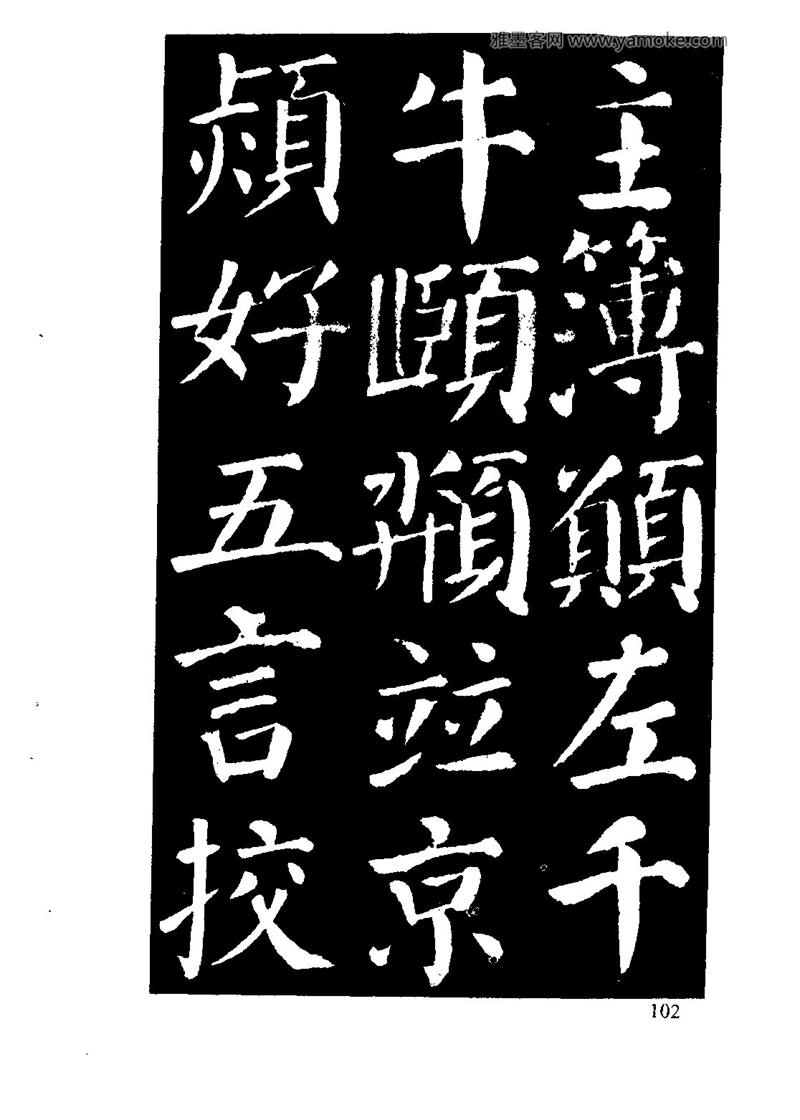 主簿顛左千
牛頤頩並京
熲好五言挍
102
雅墨客网 www.yamoke.com